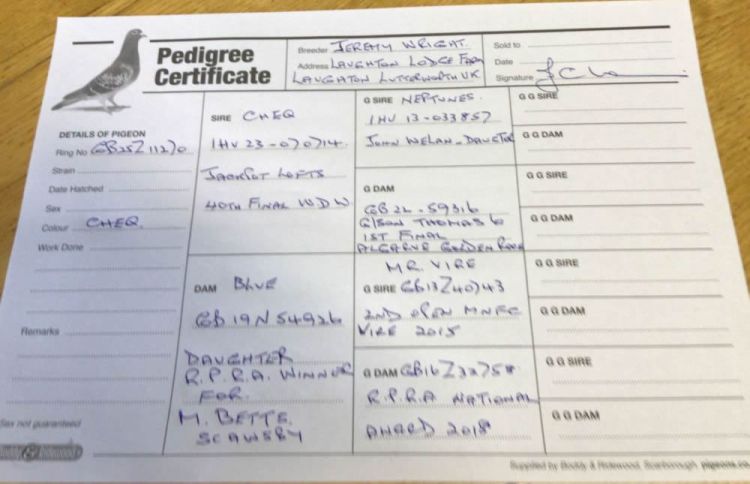 Pedigree
Certificate
Breeder JEREMY WRIGHT.
Address LAUGHTON LODGE FARM
LAUGHTON LUTTERWORTH UK
Sold to
Date
Signature
DETAILS OF PIGEON
Ring No GB25Z11270
Strain
Date Hatched
Sex
Colour CHEQ.
Work Done
Remarks
Sex not guaranteed
SIRE CHEQ
IHU 23-070714.
JACKPOT LOFTS
40TH FINAL
DAM BLUE
GB19N54926
DAUGHTER
R.P.R.A. WINNER
FOR.
M. BETTS.
SCAWSBY
G SIRE NEPTUNES.
IHU 13-033857
JOHN
G DAM
GB22-59316
G/SON THOMAS 6
1ST FINAL
ALGARVE GOLDEN RACE
MR. VIRE
G SIRE GB13Z40743
2ND OPEN MNFC
VIRE 2015
G DAM
R.P.R.A NATIONAL
AWARD 2018
G G SIRE
G G DAM
G G SIRE
G G DAM
G G SIRE
G G DAM
G G SIRE
G G DAM
Supplied by Boddy & Ridewood, Scarborough pigeons.co